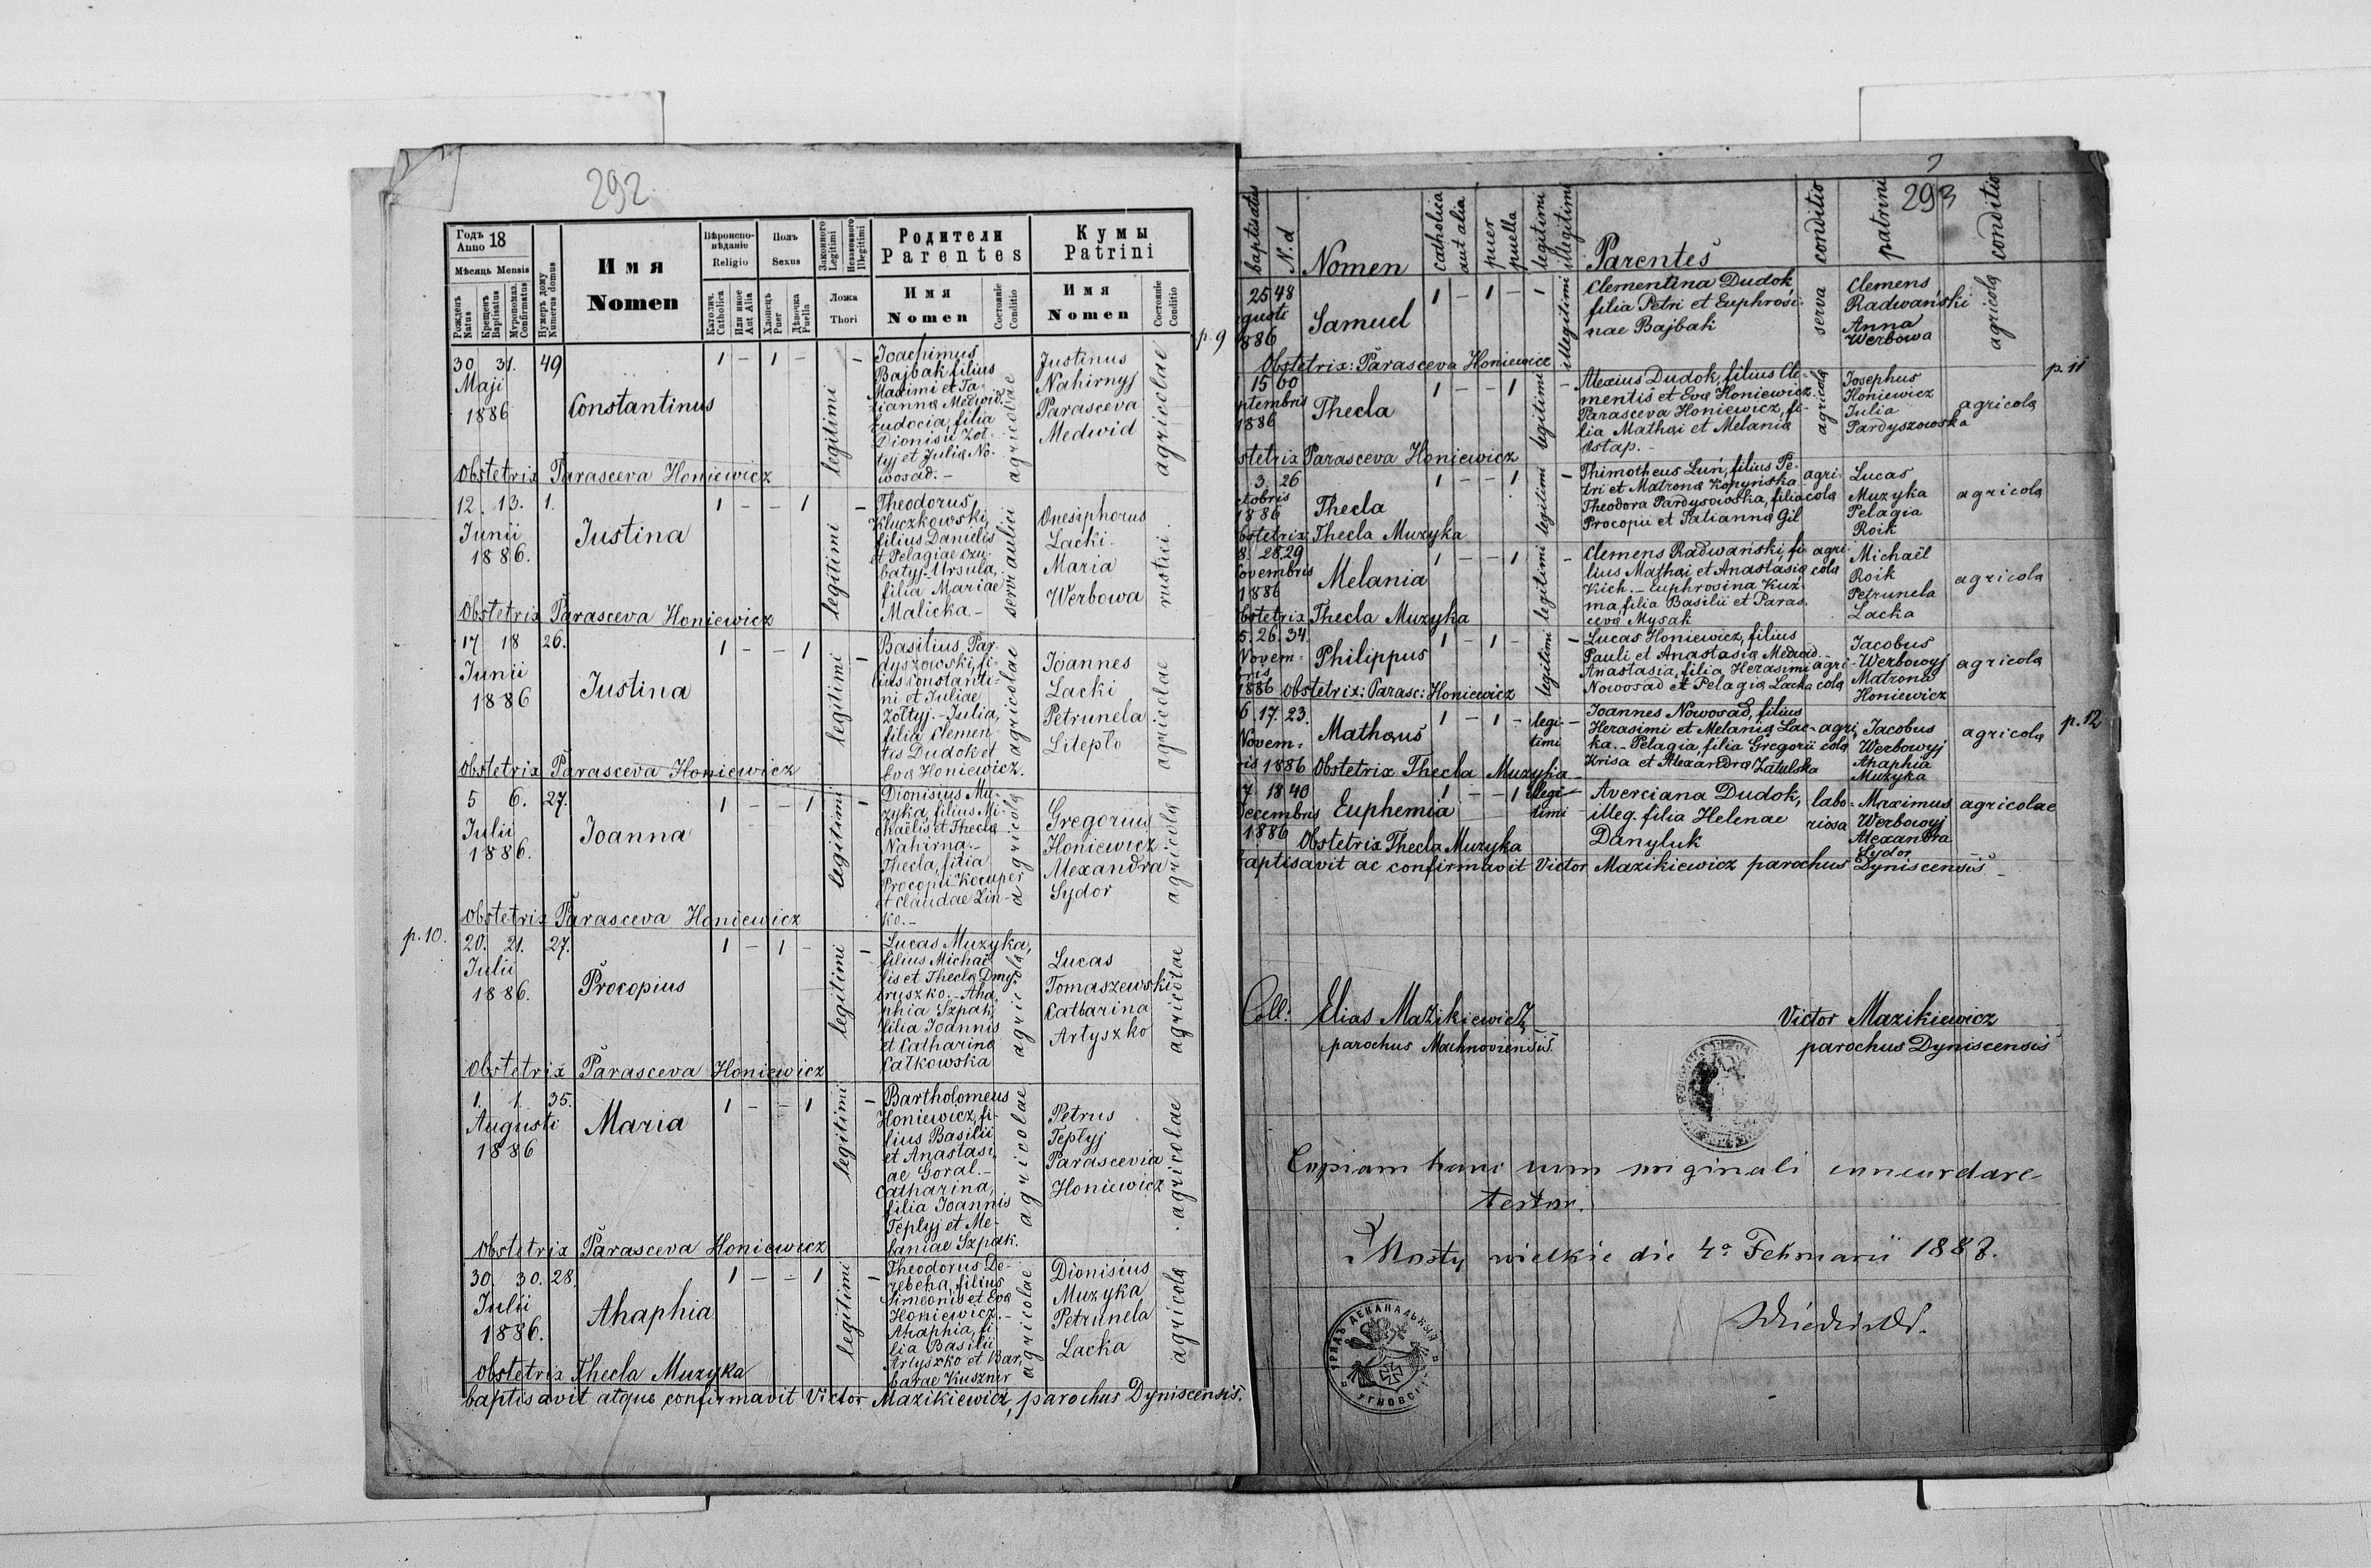 292
Годъ Anno 18
Мѣсяць Mensis
Рожденъ Natus
Крещенъ Baptisatus
Мѵропомаз. Confirmatus
Нумеръ дому Numerus domus
Имя
Nomen
Вѣроиспо-
вѣданіе
Religio
Католич. Catholica
Или иное Aut Alia
Полъ
Sexus
Хлопецъ Puer
Дѣвочка Puella
Законного Legitimi
Незаконного Illegitimi
Ложа
Thori
Родители
Parentes
Имя
Nomen
Состояніе Conditio
Кумы
Patrini
Имя
Nomen
Состояніе Conditio
p. 9
30 31. 49
Maji
1886
Constantinus
1 - 1 -
legitimi
-
Joachimus
Bajbak filius
Maximi et Ta-
tianna Medwid.
Eudocia, filia
Dionisii Żoł-
tyj et Julia No-
wosad. -
agricolae
Justinus
Nahirnyj
Parasceva
Medwid
agricolae
Obstetrix Parasceva Honiewicz
12. 13. 1.
Junii
1886.
Justina
1 - - 1
legitimi
-
Theodorus,
Kluczkowski,
filius Danielis
et Pelagiae Czu-
batyj-Ursula,
filia Mariae
Malicka -
servi aulici
Onesiphorus
Lacki.
Maria
Werbowa
rustici.
Obstetrix Parasceva Honiewicz
17 18 26.
Junii
1886
Justina
1 - - 1
legitimi
-
Basilius Par-
dyszowski, fi-
lius Constanti-
ni et Juliae
Żołtyj. - Julia,
filia Clemen-
tis Dudok et
Eva Honiewicz.
agricolae
Joannes
Lacki
Petrunela
Litepło
agricolae
Obstetrix Parasceva Honiewicz
5 6. 27.
Julii
1886.
Joanna
1 - - 1
legitimi
-
Dionisius Mu-
zyka, filius Mi-
chaëlis et Thecla
Nahirna. -
Thecla, filia
Procopii Kocuper
et Claudae Zin-
ko. -
agricola
Gregorius
Honiewicz
Alexandra
Sydor
agricola
Obstetrix Parasceva Honiewicz
p. 10.
20. 21. 27.
Julii
1886.
Procopius
1 - 1 -
legitimi
-
Lucas Muzyka,
filius Michaë-
lis et Thecla Dmy-
truszko. - Aha-
phia Szpak,
filia Joannis
et Catharina
Całkowska
agricola
Lucas
Tomaszewski
Catharina
Artyszko
agricolae
Obstetrix Parasceva Honiewicz
1. 1. 35.
Augusti
1886
Maria
1 - - 1
legitimi
-
Bartholomeus
Honiewicz, fi-
lius Basilii
et Anastasi-
ae Goral. -
Catharina,
filia Joannis
Tepłyj et Me-
laniae Szpak.
agricolae
Petrus
Tepłyj
Parascevia
Honiewicz
agricolae
Obstetrix Parasceva Honiewicz
30. 30. 28.
Julii
1886.
Ahaphia
1 - - 1
legitimi
-
Theodorus De-
rebeha, filius
Simeonis et Eva
Honiewicz. -
Ahaphia, fi-
lia Basilii
Artyszko et Bar-
barae Kusznir
agricolae
Dionisius
Muzyka
Petrunela
Lacka
agricola
Obstetrix Thecla Muzyka
baptisavit atque confirmavit Victor Mazikiewicz, parochus Dyniscensis.
293
baptisatus
N. d
Nomen
catholica
aut alia
puer
puella
legitimi
illegitimi
Parentes
conditio
patrini
conditio
25 48
gusti
1886
Samuel
1 - 1 - 1
illegitimi
Clementina Dudok,
filia Petri et Euphrosi-
nae Bajbak
serva
Clemens
Radwański
Anna
Werbowa
agricola
Obstetrix: Parasceva Honiewicz
p. 11
15 60
ptembris
1886
Thecla
1 - - 1
legitimi
-
Alexius Dudok, filius Cle-
mentis et Eva Honiewicz.
Parasceva Honiewicz, fi-
lia Mathei et Melania
Ostap. -
agricola
Josephus
Honiewicz
Julia
Pardyszowska
agricola
stetrix Parasceva Honiewicz
3. 26
ctobris
1886
Thecla
1 - - 1
legitimi
-
Thimotheus Luń, filius Pe-
tri et Matrona Kopyńska
Theodora Pardysowska, filia
Procopii et Tatianna Gil
agri-
cola
Lucas
Muzyka
Pelagia
Roik
agricola
bstetrix Thecla Muzyka
8. 28. 29
ovembris
1886
Melania
1 - - 1
legitimi
-
Clemens Radwański, fi-
lius Mathei et Anastasia
Kich. - Euphrosina Kuź-
ma, filia Basilii et Paras-
ceva Mysak
agri-
cola
Michaël
Roik
Petrunela
Lacka
agricola
bstetrix Thecla Muzyka
5. 26. 34.
Novem-
bris
1886
Philippus
1 - 1 -
legitimi
-
Lucas Honiewicz, filius
Pauli et Anastasia Medwid. -
Anastasia, filia Herasimi
Nowosad et Pelagia Lacka
agri-
cola
Jacobus
Werbowyj
Matrona
Honiewicz
agricola
obstetrix: Parasc: Honiewicz
p. 12
6. 17. 23.
Novem-
ris 1886
Matheus
1 - 1 -
legi-
timi
-
Joannes Nowosad, filius
Herasimi et Melania Lac-
ka. - Pelagia, filia Gregorii
Krisa et Alexandra Zatulska
agri-
cola
Jacobus
Werbowyj
Ahaphia
Muzyka
agricola
Obstetrix Thecla Muzyka
7 18 40
Decembris
1886
Euphemia
1 - - 1
illegi-
timi
Averciana Dudok,
illeg. filia Helenae
Danyluk
labo-
riosa
Maximus
Werbowyj
Alexandra
Sydor
agricolae
Obstetrix Thecla Muzyka
baptisavit ac confirmavit Victor Mazikiewicz parochus Dyniscensis -
Coll: Elias Mazikiewicz
parochus Machnoviensis.
Victor Mazikiewicz
parochus Dyniscensis
Copiam hanc cum originali concordare
testor.
Mosty wielkie die 4ª Februarii 1887.
УРЯДЪ ДЕКАНАЛЬНЫЙ
УГНОВСКІЙ